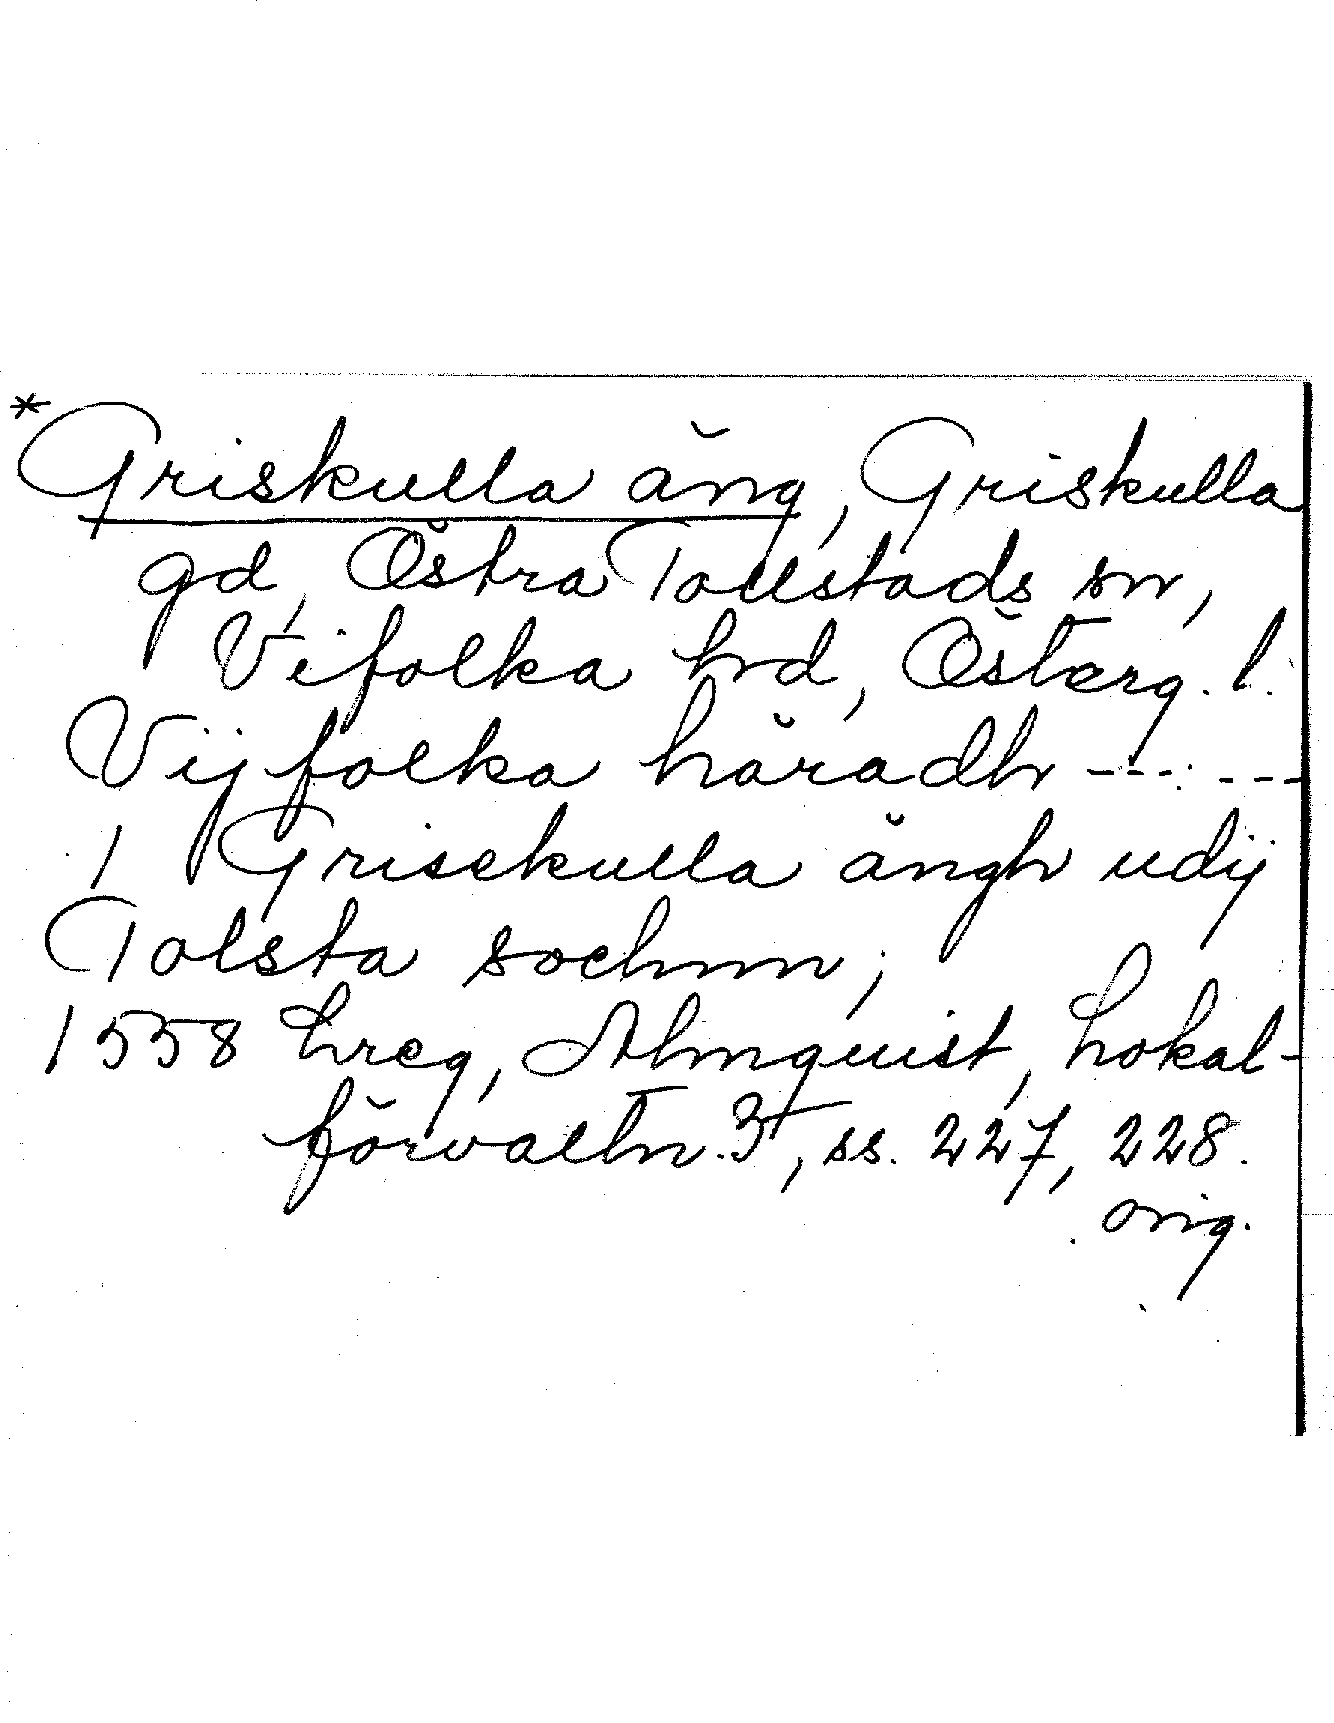 *Griskulla äng, Griskulla
gd, Östra Tollstads sn,
Vifolka hd, Österg. l.
Vijfolka häradh - - - - - -
1 Grisekulla ängh udij
Tolsta sochnn;
1558 Lreg, Almquist, Lokal-
förvaltn. 3, ss. 227, 228.
orig.